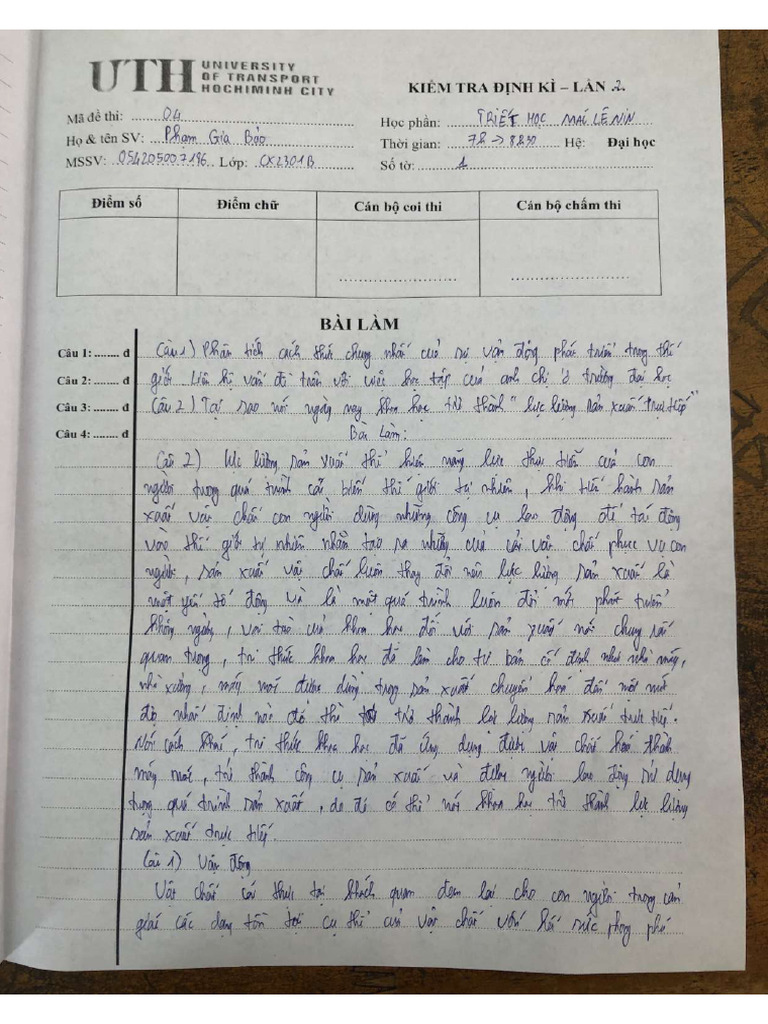 UTH UNIVERSITY
OF TRANSPORT
HOCHIMINH CITY
KIỂM TRA ĐỊNH KÌ – LẦN .2.
Mã đề thi: 04
Học phần: TRIẾT HỌC MÁC LÊ NIN
Họ & tên SV: Phạm Gia Bảo
Thời gian: 7h → 8h30 Hệ: Đại học
MSSV: 054205007196 Lớp: CX2301B
Số tờ: 1
Điểm số Điểm chữ Cán bộ coi thi Cán bộ chấm thi
BÀI LÀM
Câu 1: ....... đ
Câu 2: ....... đ
Câu 3: ....... đ
Câu 4: ....... đ
Câu 1) Phân tích cách thức chung nhất của sự vận động phát triển trong thế
giới. Liên hệ vấn đề trên với việc học tập của anh chị ở trường đại học
Câu 2) Tại sao nói ngày nay khoa học trở thành "lực lượng sản xuất trực tiếp"
Bài Làm:
Câu 2) Lực lượng sản xuất thể hiện năng lực thực tiễn của con
người trong quá trình cải biến thế giới tự nhiên, khi tiến hành sản
xuất vật chất con người dùng những công cụ lao động để tác động
vào thế giới tự nhiên nhằm tạo ra những của cải vật chất phục vụ con
người, sản xuất vật chất luôn thay đổi nên lực lượng sản xuất là
một yếu tố động và là một quá trình luôn đổi mới phát triển
không ngừng, vai trò của khoa học đối với sản xuất nói chung rất
quan trọng, tri thức khoa học đã làm cho tư bản cố định như nhà máy,
nhà xưởng, máy móc được dùng trong sản xuất chuyển hoá đến một mức
độ nhất định nào đó thì trở thành lực lượng sản xuất trực tiếp.
Nói cách khác, tri thức khoa học đã ứng dụng được vật chất hoá thành
máy móc, trở thành công cụ sản xuất và được người lao động sử dụng
trong quá trình sản xuất, do đó có thể nói khoa học trở thành lực lượng
sản xuất trực tiếp.
Câu 1) Vận động
Vật chất cái thực tại khách quan đem lại cho con người trong cảm
giác các dạng tồn tại cụ thể của vật chất vốn hết sức phong phú